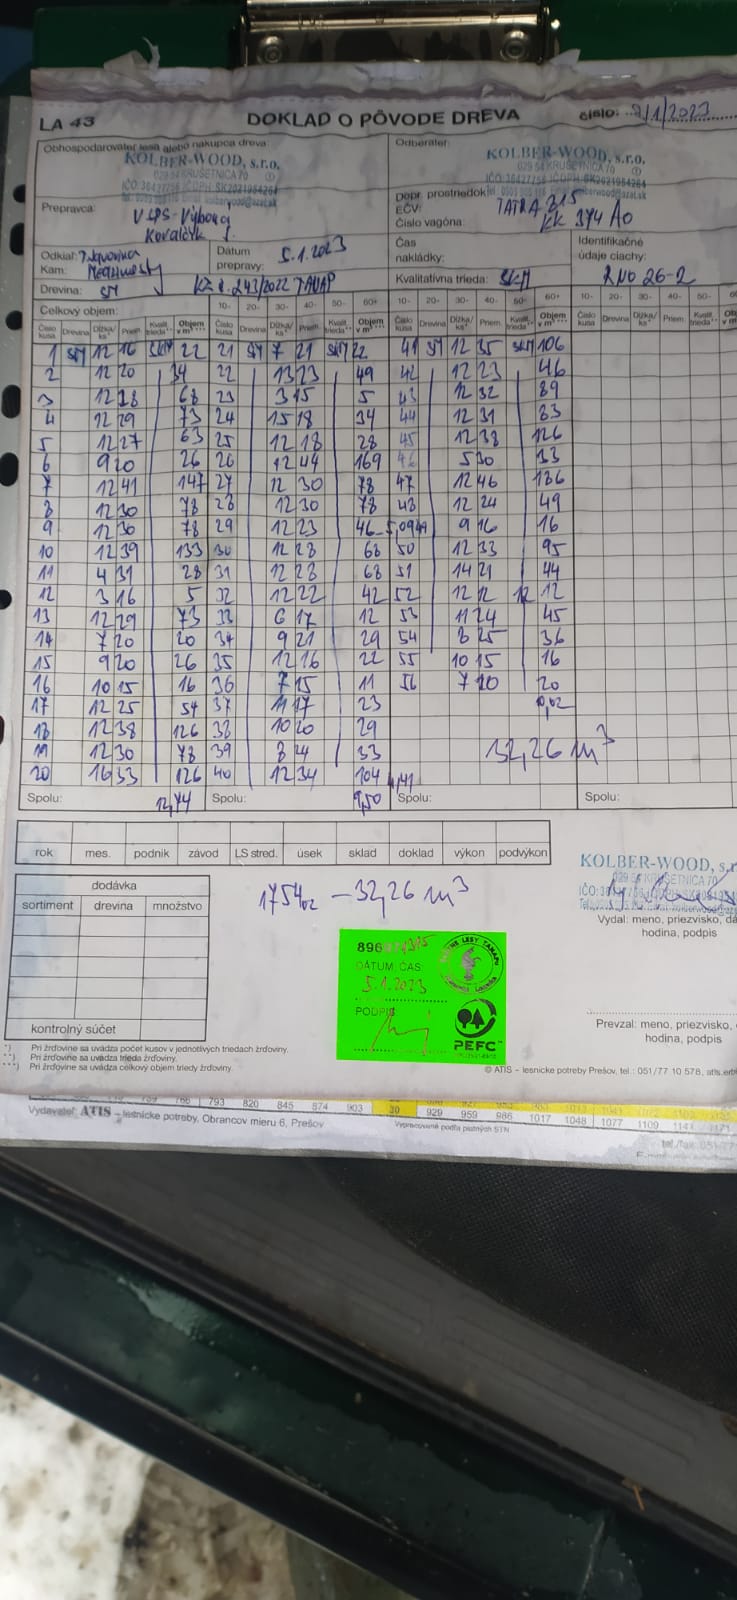 LA 43 DOKLAD O PÔVODE DREVA číslo: 2/1/2023
Obhospodarovateľ lesa alebo nákupca dreva:
KOLBER-WOOD, s.r.o.
029 54 KRUŠETNICA 70
IČO: 36427756 IČ DPH: SK2021954264
Odberateľ:
KOLBER-WOOD, s.r.o.
029 54 KRUŠETNICA 70
Prepravca:
Kovalčík J.
Dopr. prostriedok: TATRA 815
EČV: KK 374 AO
Číslo vagóna:
Odkiaľ: Javorina
Kam:
Dátum prepravy: 5.1.2023
Čas nakládky:
Identifikačné údaje ciachy: 2 NO 26-2
Drevina: SM
Kvalitatívna trieda: SKM
Celkový objem: 10- 20- 30- 40- 50- 60+ 10- 20- 30- 40- 50- 60+ 10- 20- 30- 40- 50-
Číslo kusa Drevina Dĺžka/ks* Priem. Kvalit. trieda** Objem v m³*** Číslo kusa Drevina Dĺžka/ks* Priem. Kvalit. trieda** Objem v m³*** Číslo kusa Drevina Dĺžka/ks* Priem. Kvalit. trieda** Objem v m³*** Číslo kusa Drevina Dĺžka/ks* Priem. Kvalit. trieda**
1 SM 12 16 SKM 22 21 SM 7 21 SKM 22 41 SM 12 35 SKM 106
2 12 20 34 22 13 23 49 42 12 23 46
3 12 28 68 23 3 15 5 43 12 32 89
4 12 29 73 24 15 18 34 44 12 31 83
5 12 27 63 25 12 18 28 45 12 38 126
6 9 20 26 26 12 44 169 46 5 30 33
7 12 41 147 27 12 30 78 47 12 46 186
8 12 30 78 28 12 30 78 48 12 24 49
9 12 30 78 29 12 23 46 49 9 16 16
10 12 39 133 30 12 28 68 50 12 33 95
11 4 31 28 31 12 28 68 51 14 21 44
12 3 16 5 32 12 22 42 52 12 12 12
13 12 29 73 33 6 17 12 53 11 24 45
14 7 20 20 34 9 21 29 54 8 25 36
15 9 20 26 35 12 16 22 55 10 15 16
16 10 15 16 36 7 15 11 56 7 20 20
17 12 25 54 37 11 17 23
18 12 38 126 38 10 20 29
19 12 30 78 39 8 24 33 32,26 m³
20 16 33 126 40 12 34 104
Spolu: Spolu: 9,50 Spolu: Spolu:
rok mes. podnik závod LS stred. úsek sklad doklad výkon podvýkon
dodávka
sortiment drevina množstvo
kontrolný súčet
– 32,26 m³
KOLBER-WOOD, s.r
029 54 KRUŠETNICA 70
Vydal: meno, priezvisko, dá
hodina, podpis
DÁTUM, ČAS:
5.1.2023
PODPIS
PEFC™
Prevzal: meno, priezvisko,
hodina, podpis
*) Pri žrďovine sa uvádza počet kusov v jednotlivých triedach žrďoviny.
**) Pri žrďovine sa uvádza trieda žrďoviny.
***) Pri žrďovine sa uvádza celkový objem triedy žrďoviny.
© ATIS - lesnícke potreby Prešov, tel.: 051/77 10 578,
793 820 845 874 903 30 929 959 986 1017 1048 1077 1109 1141 1171
Vydavateľ: ATIS – lesnícke potreby, Obrancov mieru 6, Prešov
Vypracované podľa platných STN
tel./fax: